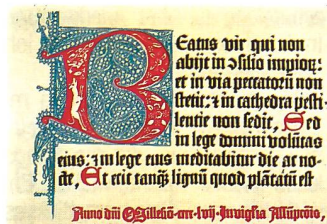 Beatus vir qui non
abijt in ꝯsilio impioꝝ:
et in via peccatoꝝ non
stetit: ⁊ in cathedra pesti-
lentie non sedit, Sed
in lege domini volũtas
eius: ⁊ in lege eius meditabitur die ac no-
cte, Et erit tanqꝫ lignũ quod plãtatũ est
Anno dñi Millesiõ-cccc-lvij-In vigilia Assũpcõis,